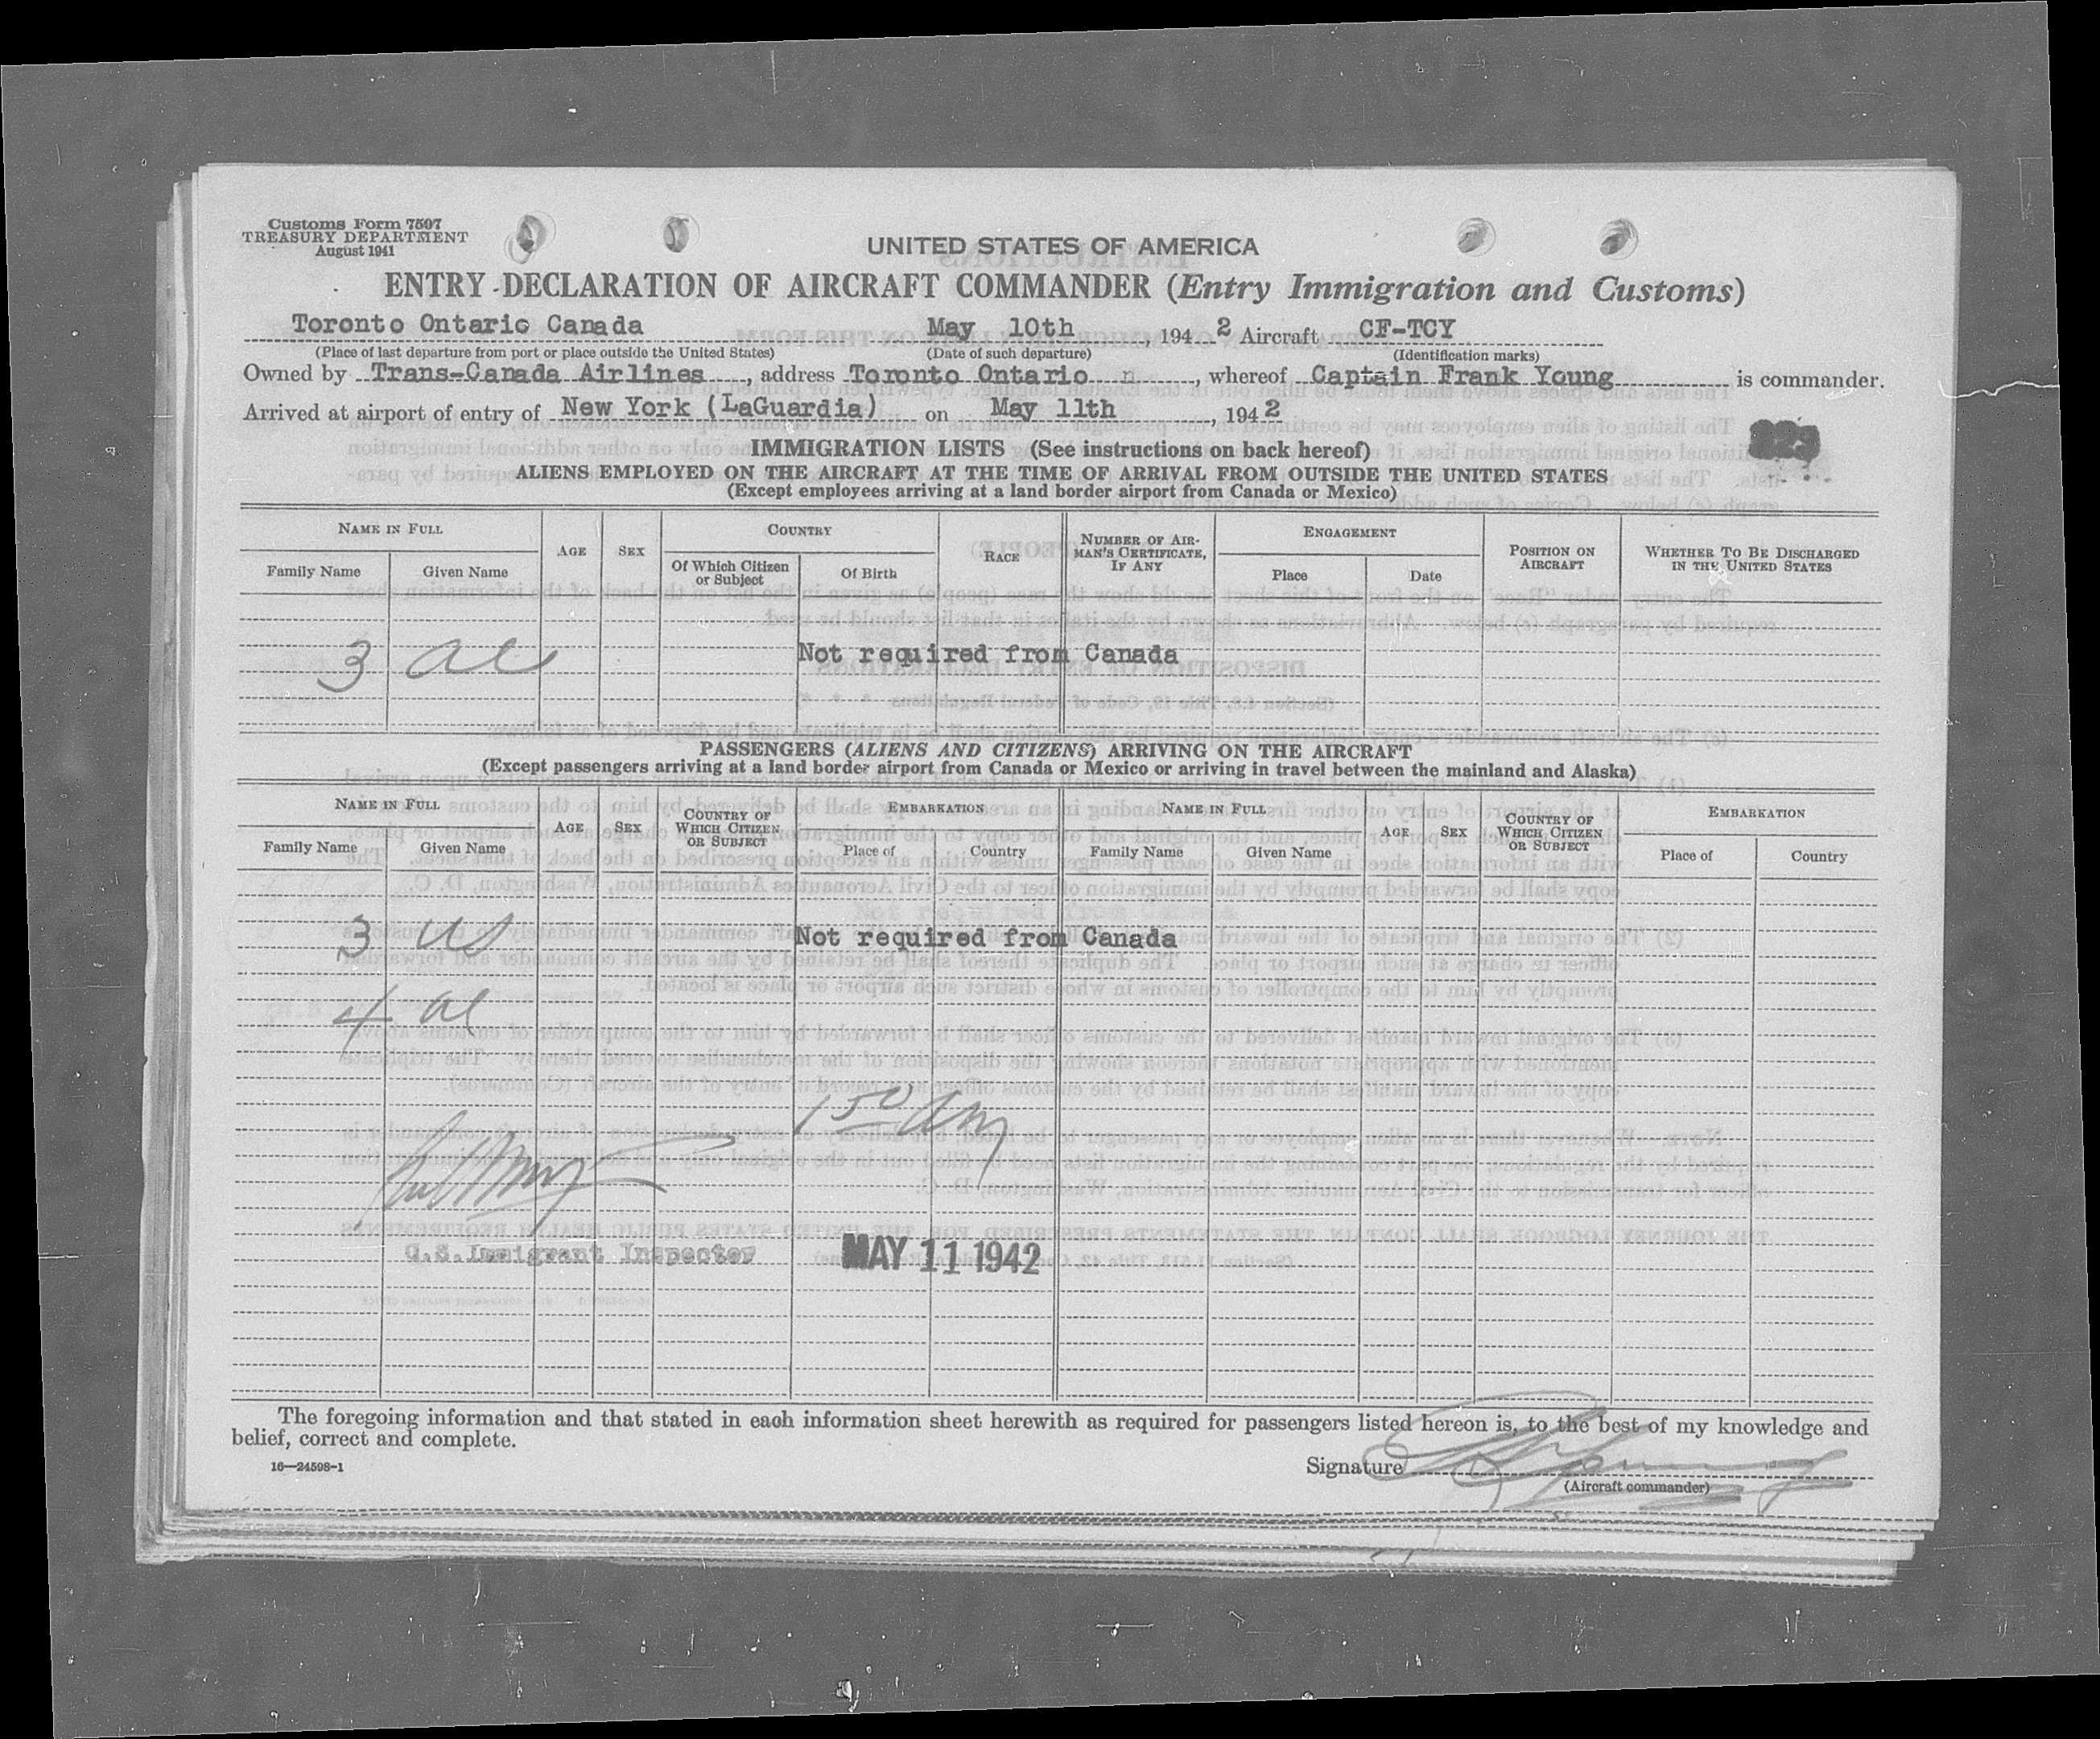 Customs Form 7507
TREASURY DEPARTMENT
August 1941
UNITED STATES OF AMERICA
ENTRY DECLARATION OF AIRCRAFT COMMANDER (Entry Immigration and Customs)
Toronto Ontario Canada May 10th, 1942 Aircraft CF-TCY
(Place of last departure from port or place outside the United States) (Date of such departure) (Identification marks)
Owned by Trans-Canada Airlines, address Toronto Ontario n, whereof Captain Frank Young is commander.
Arrived at airport of entry of New York (LaGuardia) on May 11th, 1942
IMMIGRATION LISTS (See instructions on back hereof)
ALIENS EMPLOYED ON THE AIRCRAFT AT THE TIME OF ARRIVAL FROM OUTSIDE THE UNITED STATES
(Except employees arriving at a land border airport from Canada or Mexico)
NAME IN FULL AGE SEX COUNTRY RACE NUMBER OF AIRMAN'S CERTIFICATE, IF ANY ENGAGEMENT POSITION ON AIRCRAFT WHETHER TO BE DISCHARGED IN THE UNITED STATES
Family Name Given Name Of Which Citizen or Subject Of Birth Place Date
3 al Not required from Canada
PASSENGERS (ALIENS AND CITIZENS) ARRIVING ON THE AIRCRAFT
(Except passengers arriving at a land border airport from Canada or Mexico or arriving in travel between the mainland and Alaska)
NAME IN FULL AGE SEX COUNTRY OF WHICH CITIZEN OR SUBJECT EMBARKATION NAME IN FULL AGE SEX COUNTRY OF WHICH CITIZEN OR SUBJECT EMBARKATION
Family Name Given Name Place of Country Family Name Given Name Place of Country
3 us Not required from Canada
4 al
150 am
U.S. Immigrant Inspector MAY 11 1942
The foregoing information and that stated in each information sheet herewith as required for passengers listed hereon is, to the best of my knowledge and
belief, correct and complete.
16—24598-1
Signature
(Aircraft commander)